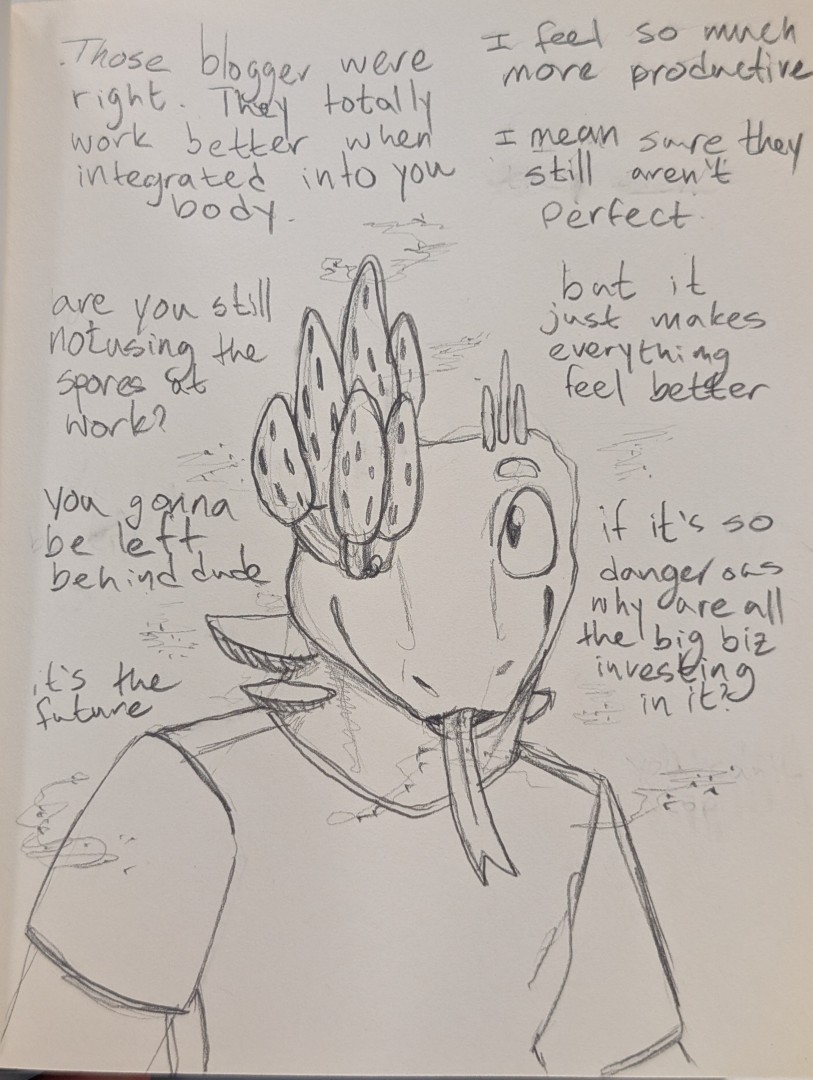 Those blogger were
right. They totally
work better when
integrated into you
body.
I feel so much
more productive
I mean sure they
still aren't
perfect.
are you still
not using the
spores at
work?
but it
just makes
everything
feel better
you gonna
be left
behind dude
if it's so
dangerous
why are all
the big biz
investing
in it?
it's the
future